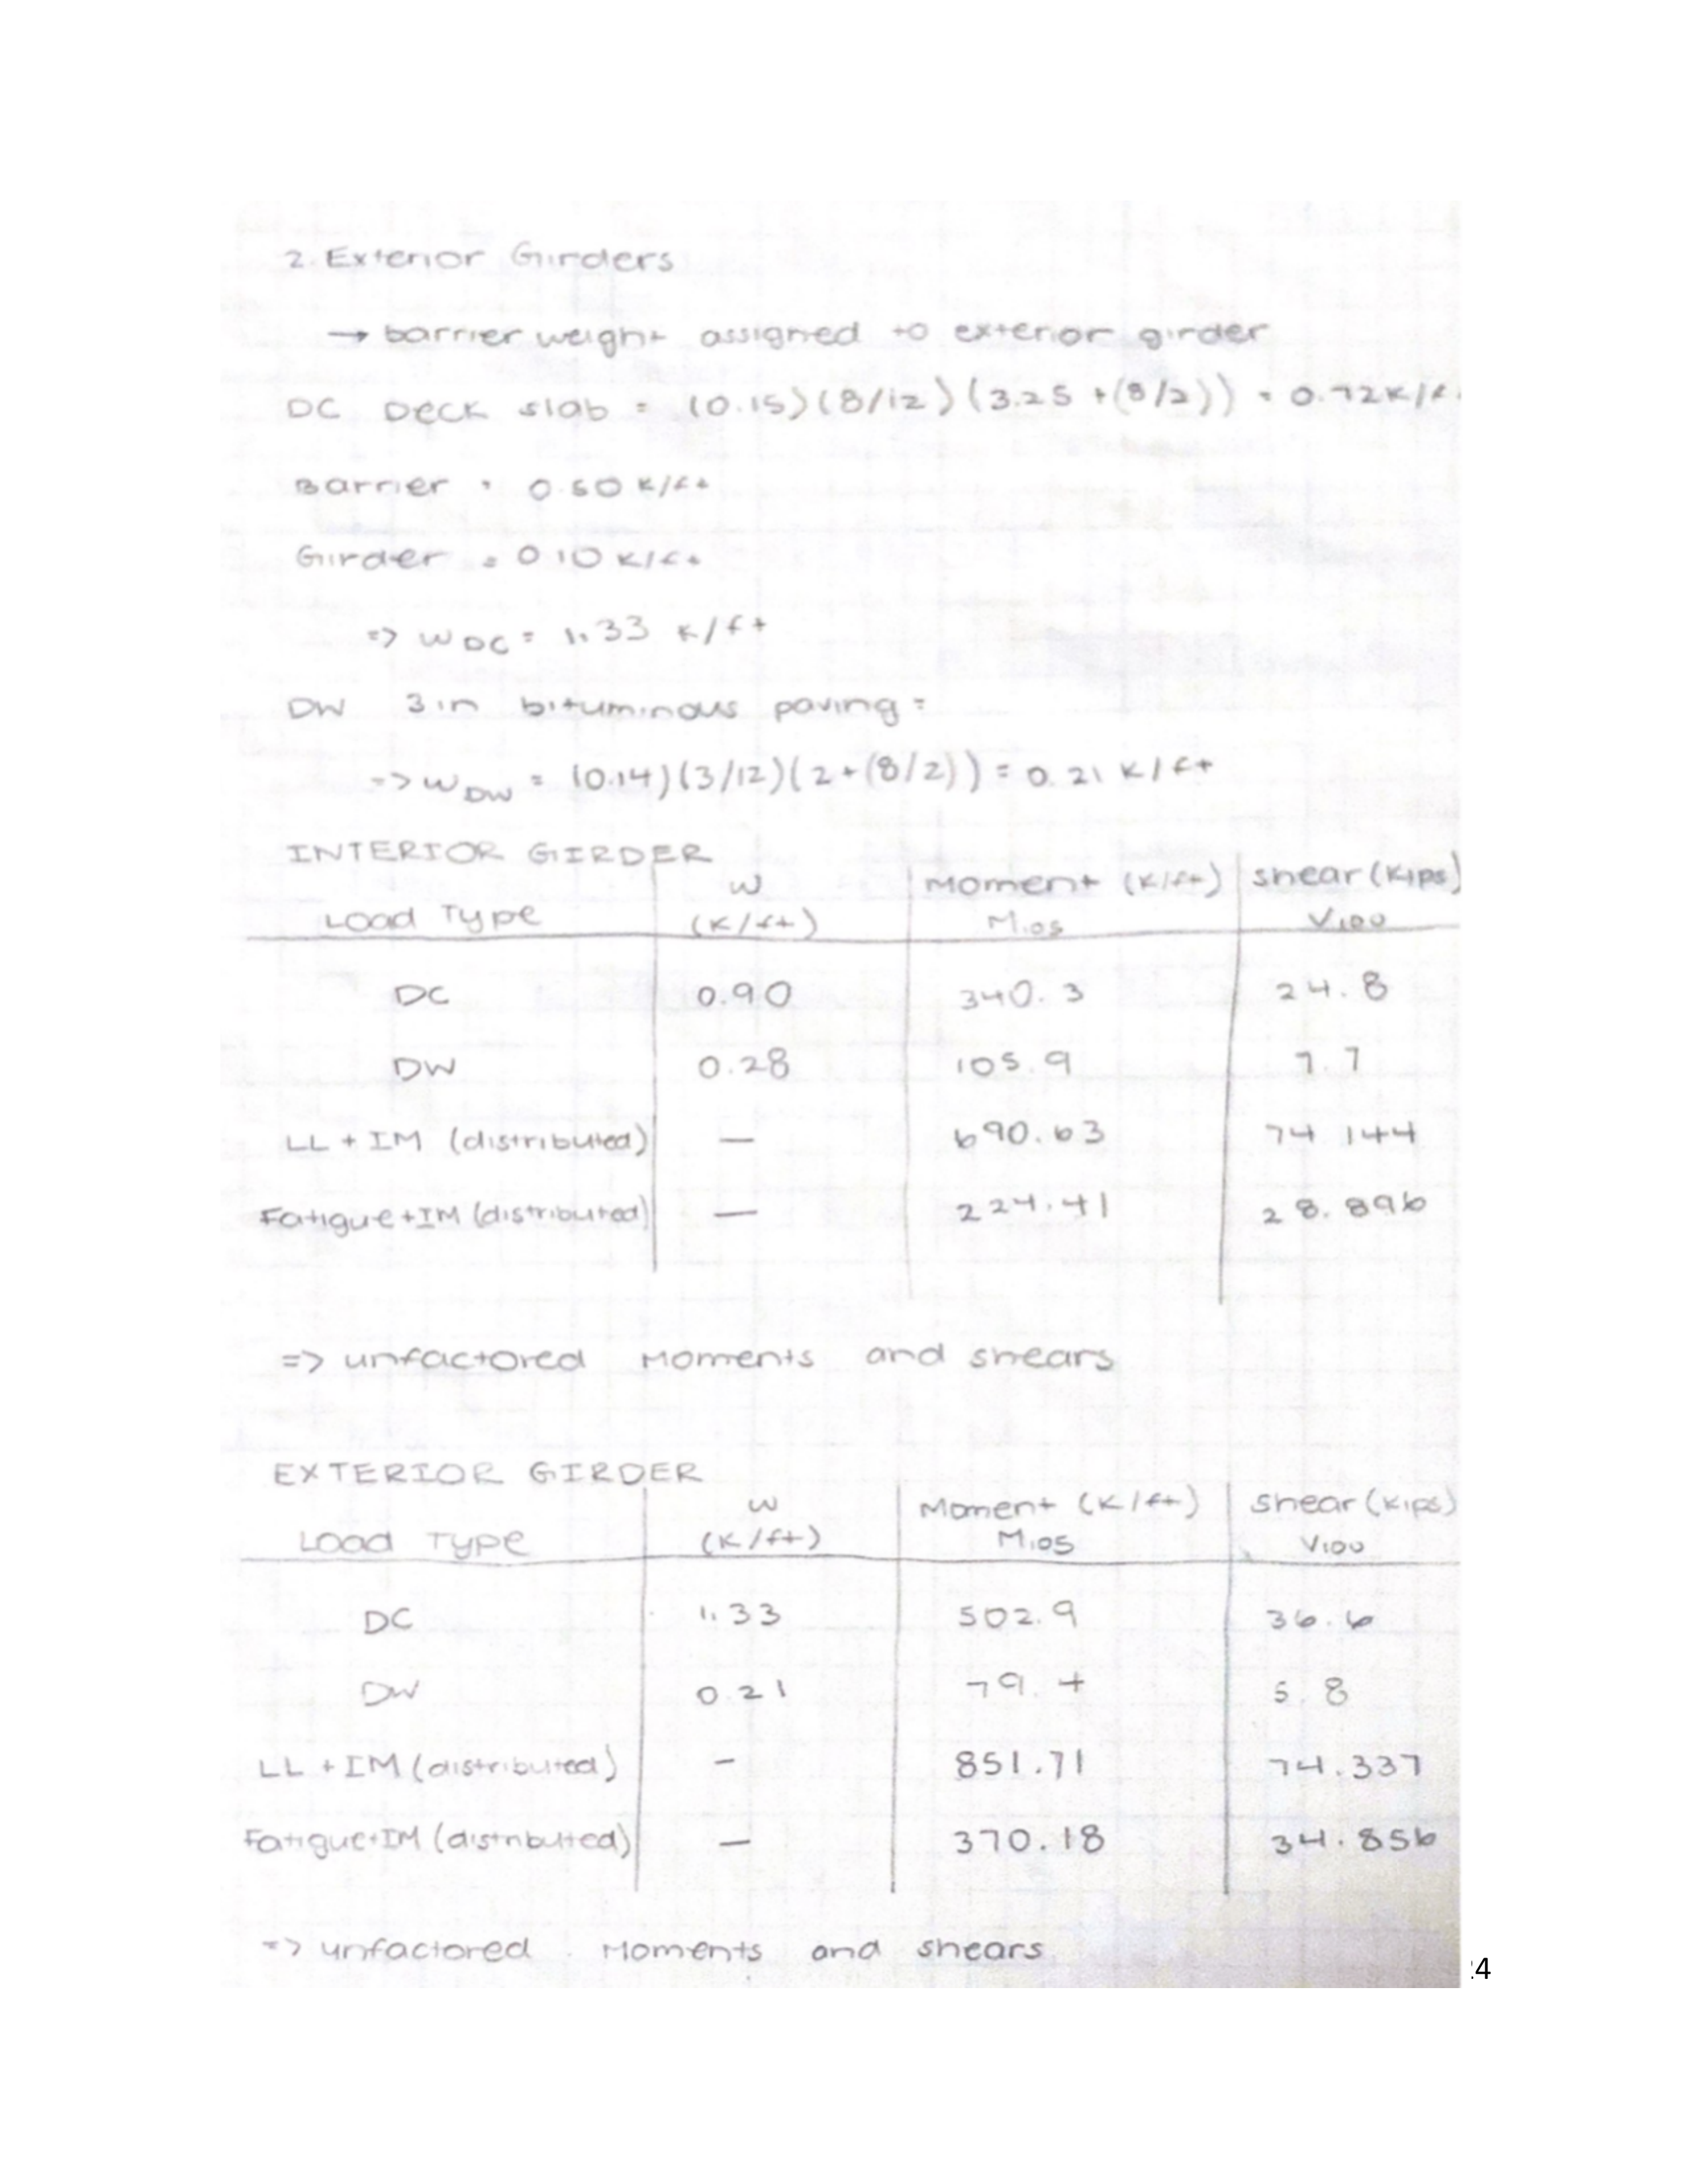 2. Exterior Girders
→ barrier weight assigned to exterior girder
DC Deck slab = (0.15)(8/12)(3.25 + (8/2)) = 0.72 k/f
Barrier = 0.50 k/ft
Girder = 0.10 k/ft
=> wDC = 1.33 k/ft
DW 3 in bituminous paving =
=> wDW = (0.14)(3/12)(2+(8/2)) = 0.21 k/ft
INTERIOR GIRDER
Load Type | w (k/ft) | Moment (k/ft) M105 | shear (kips) V100
DC 0.90 340.3 24.8
DW 0.28 105.9 7.7
LL + IM (distributed) — 690.63 74.144
Fatigue+IM (distributed) — 224.41 28.896
=> unfactored Moments and shears
EXTERIOR GIRDER
Load Type | w (k/ft) | Moment (k/ft) M105 | shear (kips) V100
DC 1.33 502.9 36.6
DW 0.21 79.4 5.8
LL + IM (distributed) — 851.71 74.337
Fatigue+IM (distributed) — 370.18 34.856
=> unfactored Moments and shears
24